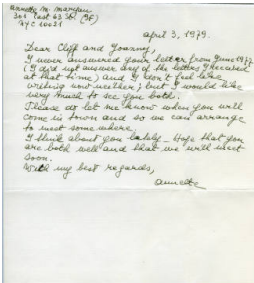 Annette M.
301 East 63 St. (9F)
NYC 10021
April 3, 1979.
Dear Cliff and Joanny,
I never answered your letter from June 1977
(I did not answer any of the letters I received
at that time) and I don't feel like
writing now neither; but I would like
very much to see you both.
Please do let me know when you will
come in town and so we can arrange
to meet some where.
I think about you lately. Hope that you
are both well and that we will meet
soon.
With my best regards,
Annette